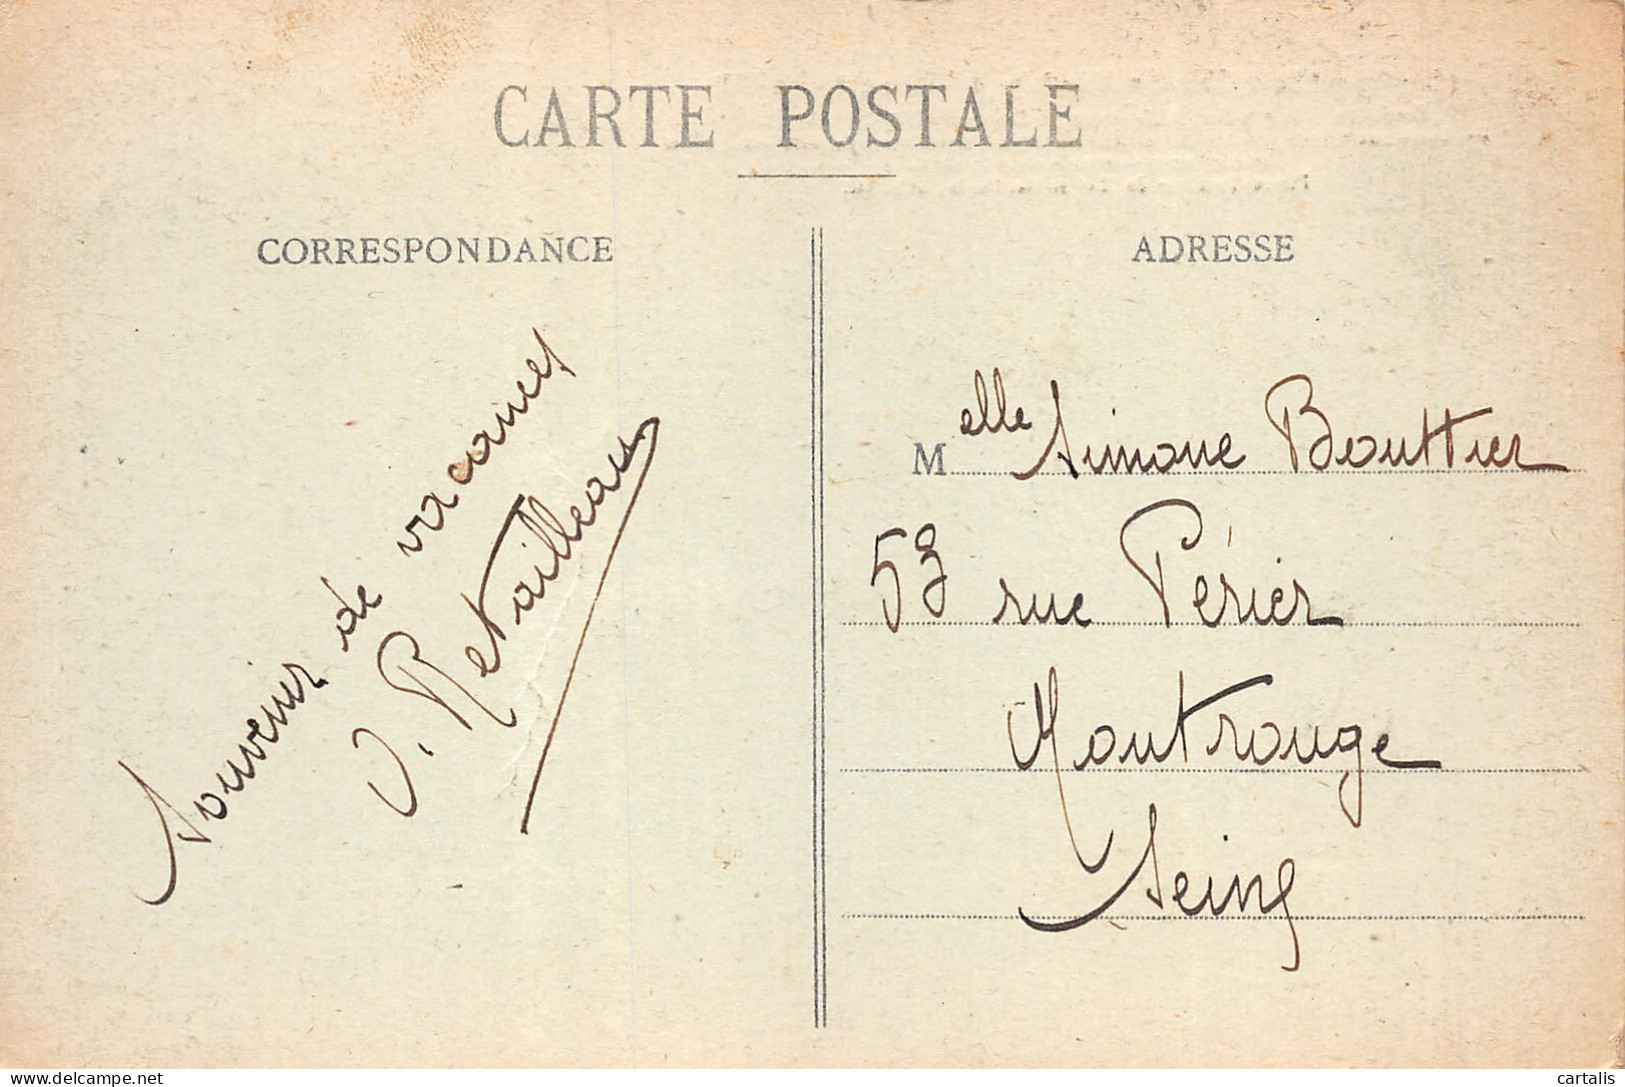 CARTE POSTALE
CORRESPONDANCE
Souvenir de vacances
J. Retailleau
ADRESSE
Melle Simone Bouttier
53 rue Périer
Montrouge
Seine
www.delcampe.net
cartalis